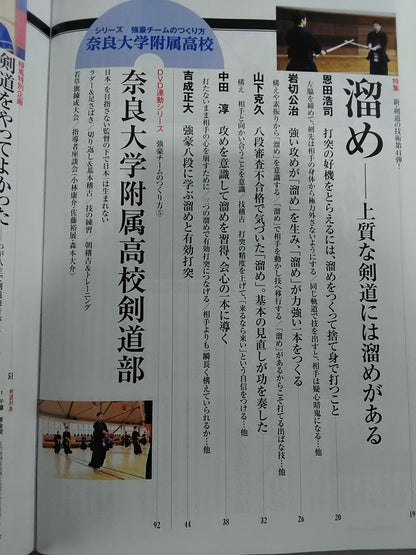 特集
新・剣道の技術第41弾!
溜め──上質な剣道には溜めがある
恩田浩司 打突の好機をとらえるには、溜めをつくって捨て身で打つこと
左脇を締めて、剣先は相手の身体から極力外さないようにする/同じ軌道で技を出すと、相手は疑心暗鬼になる…他
20
岩切公治 強い攻めが「溜め」を生み、「溜め」が力強い一本をつくる
構えや素振りから「溜め」を意識する/「溜め」で相手を動かし技へ移行する/「溜め」があるからこそ打てる出ばな技…他
26
山下克久 八段審査不合格で気づいた「溜め」。基本の見直しが功を奏した
構え 相手と向かい合うことを意識 技稽古 打突の精度を上げて、「来るなら来い」という自信をつける…他
32
中田 淳 攻めを意識して溜めを習得、会心の一本に導く
打たないまま相手の心を崩すために/三つの溜めで有効打突につなげる/相手よりも一瞬長く構えていられるか…他
38
吉成正大 強豪八段に学ぶ溜めと有効打突
44
シリーズ 強豪チームのつくり方
奈良大学附属高校
DVD連動シリーズ 強豪チームのつくり方⑤
奈良大学附属高校剣道部
92
日本一を目指さない監督の下で日本一は生まれない
ラダー&足さばき/切り返し&基本稽古/技の練習/朝稽古&トレーニング
若草旗錬成大会/指導者座談会(小林康介・佐藤裕展・森本大介)
特別企画
剣道をやってよかった
19
51